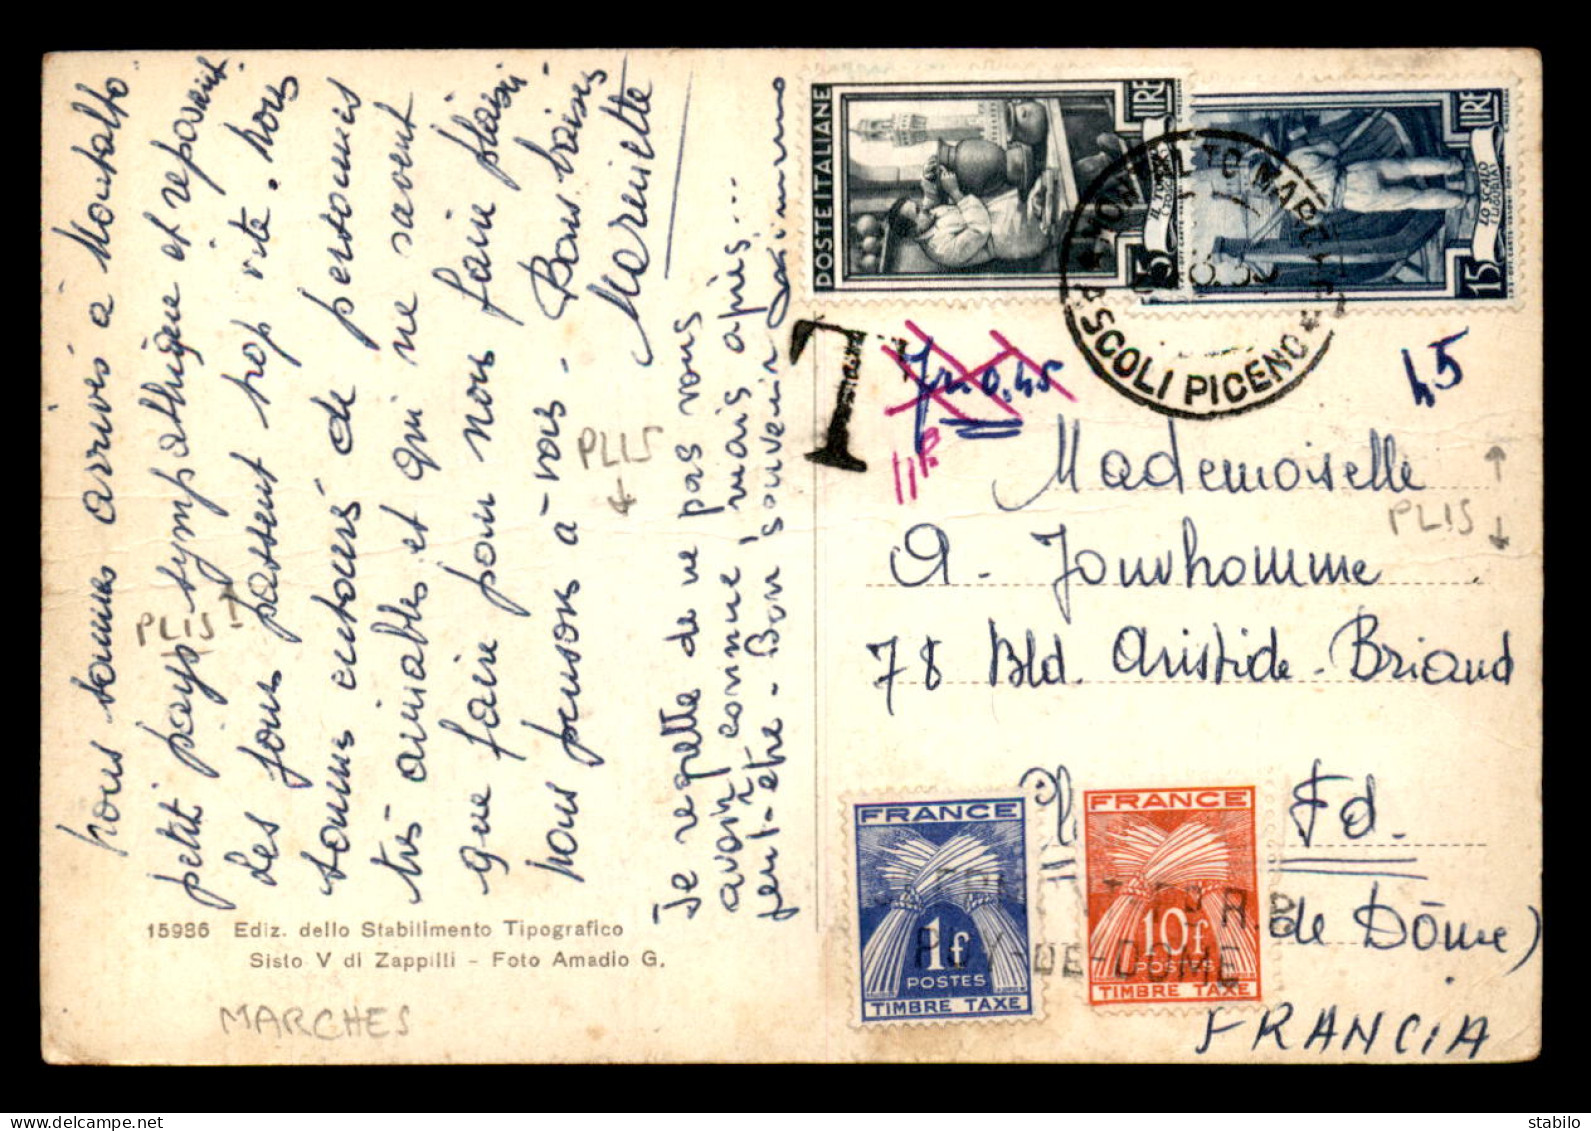 Nous sommes arrivés à Montalto
petit pays sympathique et reposant.
Les jours passent trop vite. Nous
sommes entourés de personnes
très aimables et qui ne savent
que faire pour nous faire plaisir
nous pensons à vous. Bons baisers
Mariette
Je regrette de ne pas vous
avoir connue, mais après...
peut-être - Bon souvenir
15986 Ediz. dello Stabilimento Tipografico
Sisto V di Zappilli - Foto Amadio G.
MARCHES
PLIS
PLIS
PLIS
POSTE ITALIANE
5 LIRE
15 LIRE
LO SCALO
LIGURIA
MONTALTO MARCHE
ASCOLI PICENO
T
0.45
11F
45
Mademoiselle
A. Jouvhomme
78 Bld. Aristide-Briand
Fd.
de Dôme)
FRANCIA
FRANCE
1f
POSTES
TIMBRE TAXE
FRANCE
10f
POSTES
TIMBRE TAXE
R.P.
PUY-DE-DOME
Delcampe.net
artypicwall